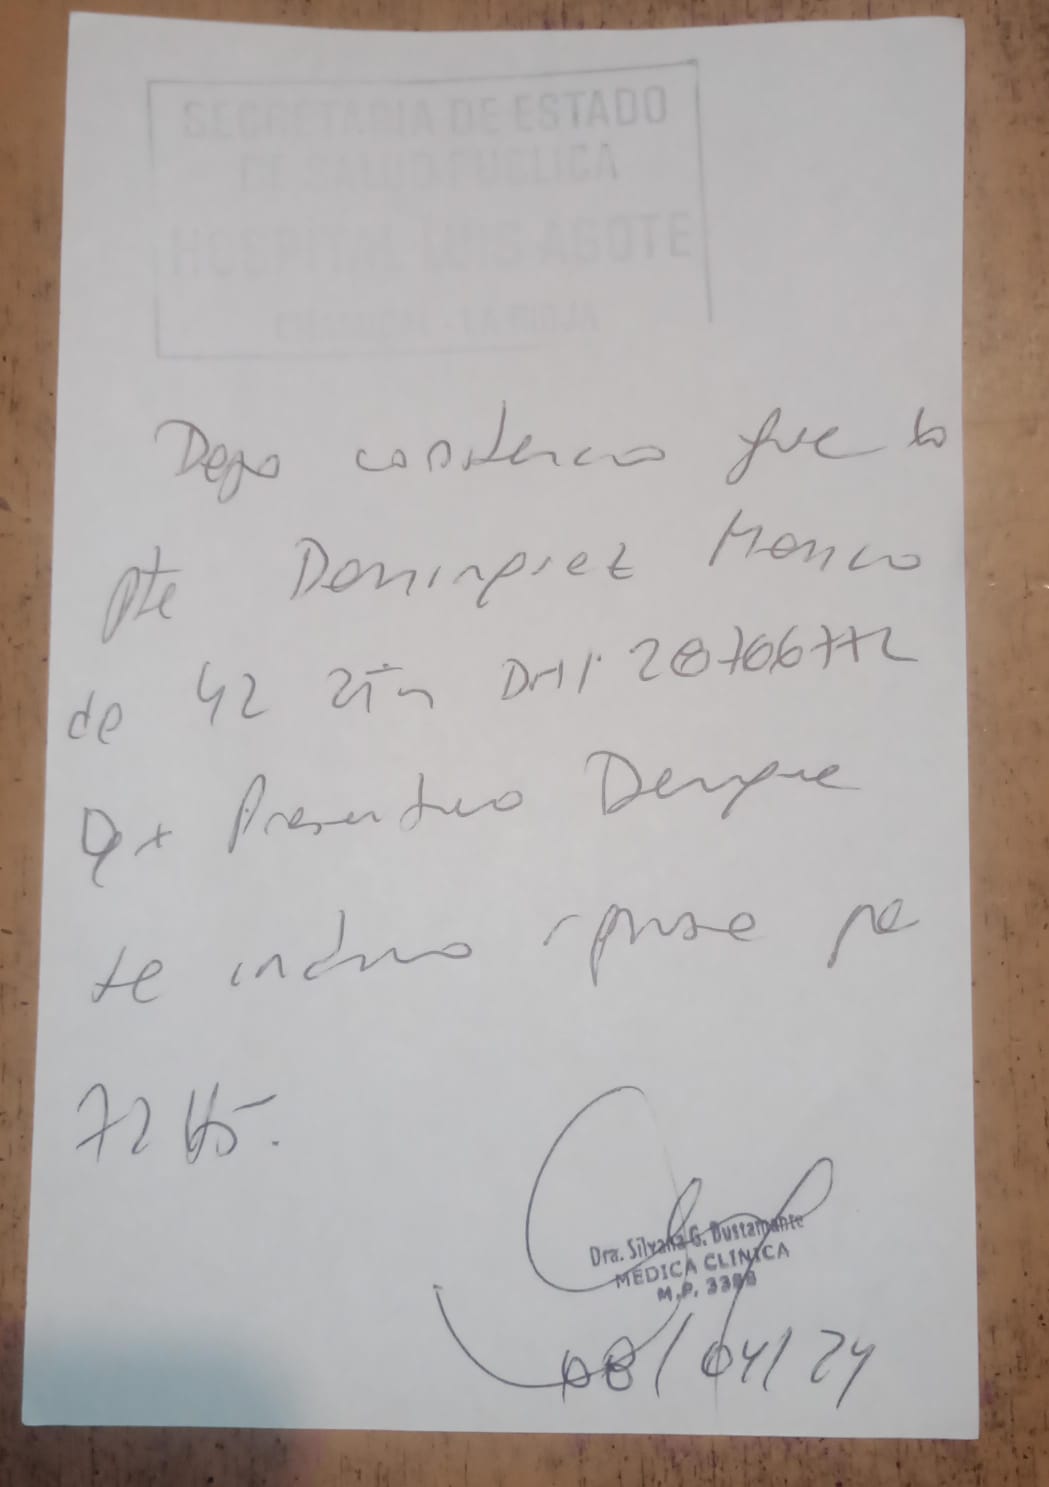 SECRETARIA DE ESTADO
DE SALUD PUBLICA
HOSPITAL LUIS AGOTE
CHAMICAL - LA RIOJA
Dejo constancia que la
pte Dominguez Monica
de 42 años DNI: 28766772
Dx Presuntivo Dengue
se indica reposo por
72 Hs.
Dra. Silvana G. Bustamante
MÉDICA CLÍNICA
M.P. 3398
08/04/24